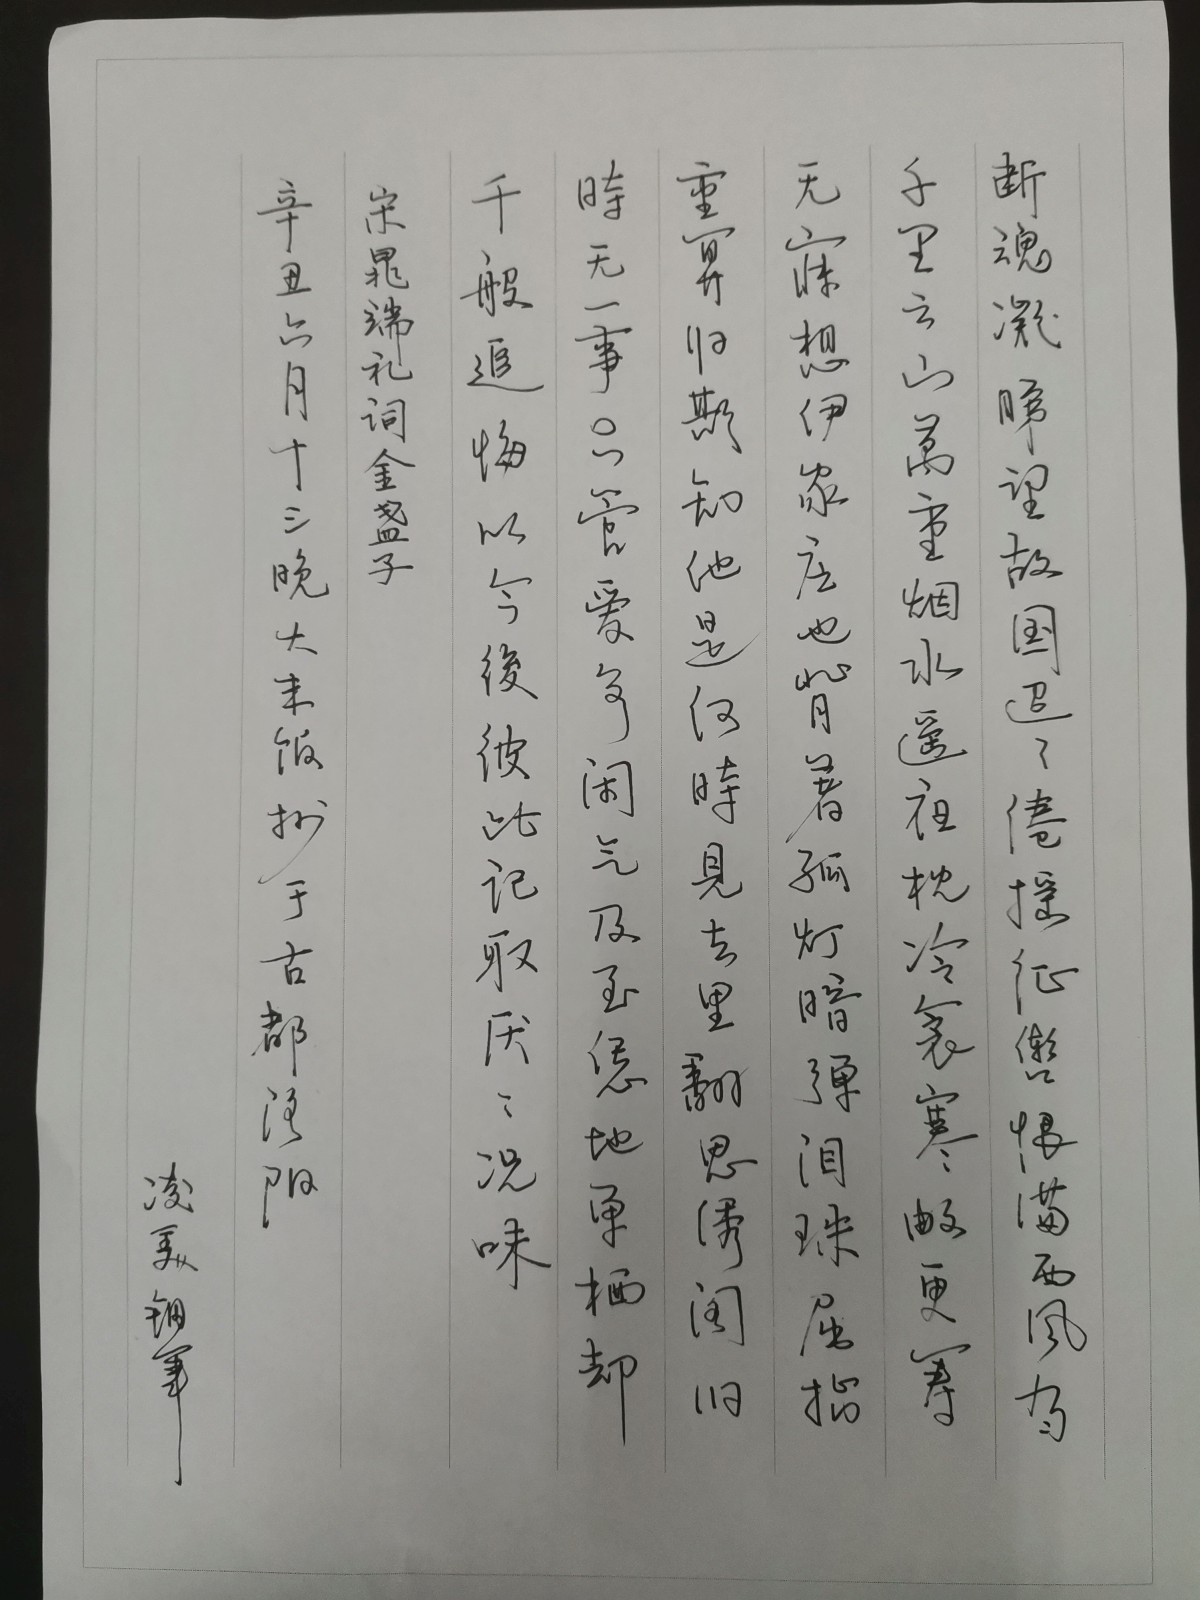 断魂凝睇望故国迢々倦摇征辔恨满西风有
千里云山万重烟水遥祖枕冷衾寒夜更寒
无寐想伊家应也背着孤灯暗弹泪珠屈指
重算归期知他是何时见去里翻思绣阁旧
時无一事只管爱争闲气及至恁地单栖却
千般追悔从今後彼此记取厌々况味
宋晁端礼词金盏子
辛丑六月十三晚大米饭抄于古都洛阳
凌美钢笔